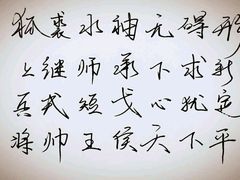 狐裘水袖无碍形
上继师承下求新
兵武短戈心犹定
将帅王侯天下平